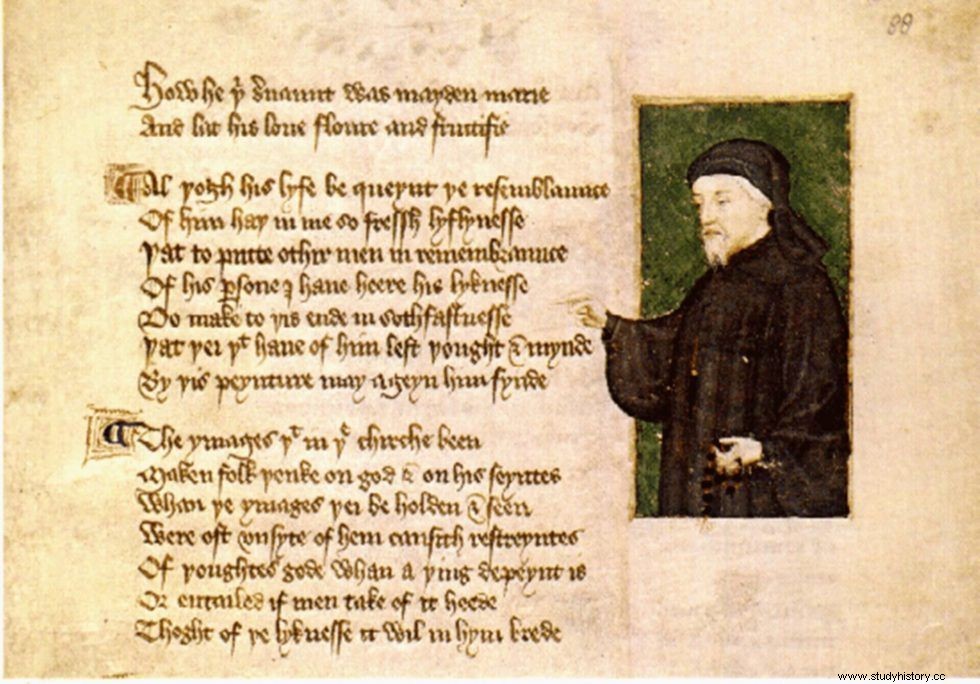 88
How he þⁱ s̃uaunt was mayden marie
And lat his loue floure and fructifie
Al þogh his lyfe be queynt þe resemblaunce
Of him haþ in me so fressh lyflynesse
Þat to putte othir men in remembraunce
Of his ꝑsone I haue heere his lyknesse
Do make to þis ende in sothfastnesse
Þat þei þᵗ haue of him left þought & mynde
By þis peynture may ageyn him fynde
The ymages þᵗ in þᵉ chirche been
Maken folk þenke on god & on his seyntes
Whan þe ymages þei be holden & seen
Were oft vnsyte of hem causith restreyntes
Of þoughtes gode whan a þing depeynt is
Or entailed if men take of it heede
Thoght of þe lyknesse it wil in hym brede
www.studyhistory.cc